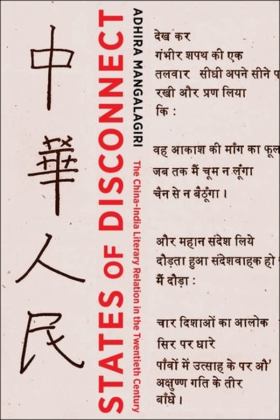 中
華
人
民
STATES OF DISCONNECT
The China-India Literary Relation in the Twentieth Century
ADHIRA MANGALAGIRI
देख कर
गंभीर शपथ की एक
तलवार सीधी अपने सीने प
रखी और प्रण लिया
कि :
वह आकाश की माँग का फूल
जब तक मैं चूम न लूँगा
चैन से न बैठूँगा।
और महान संदेश लिये
दौड़ता हुआ संदेशवाहक हो
मैं दौड़ा :
चार दिशाओं का आलोक
सिर पर धारे
पाँवों में उत्साह के पर औ'
अक्षुण्ण गति के तीर
बाँधे।